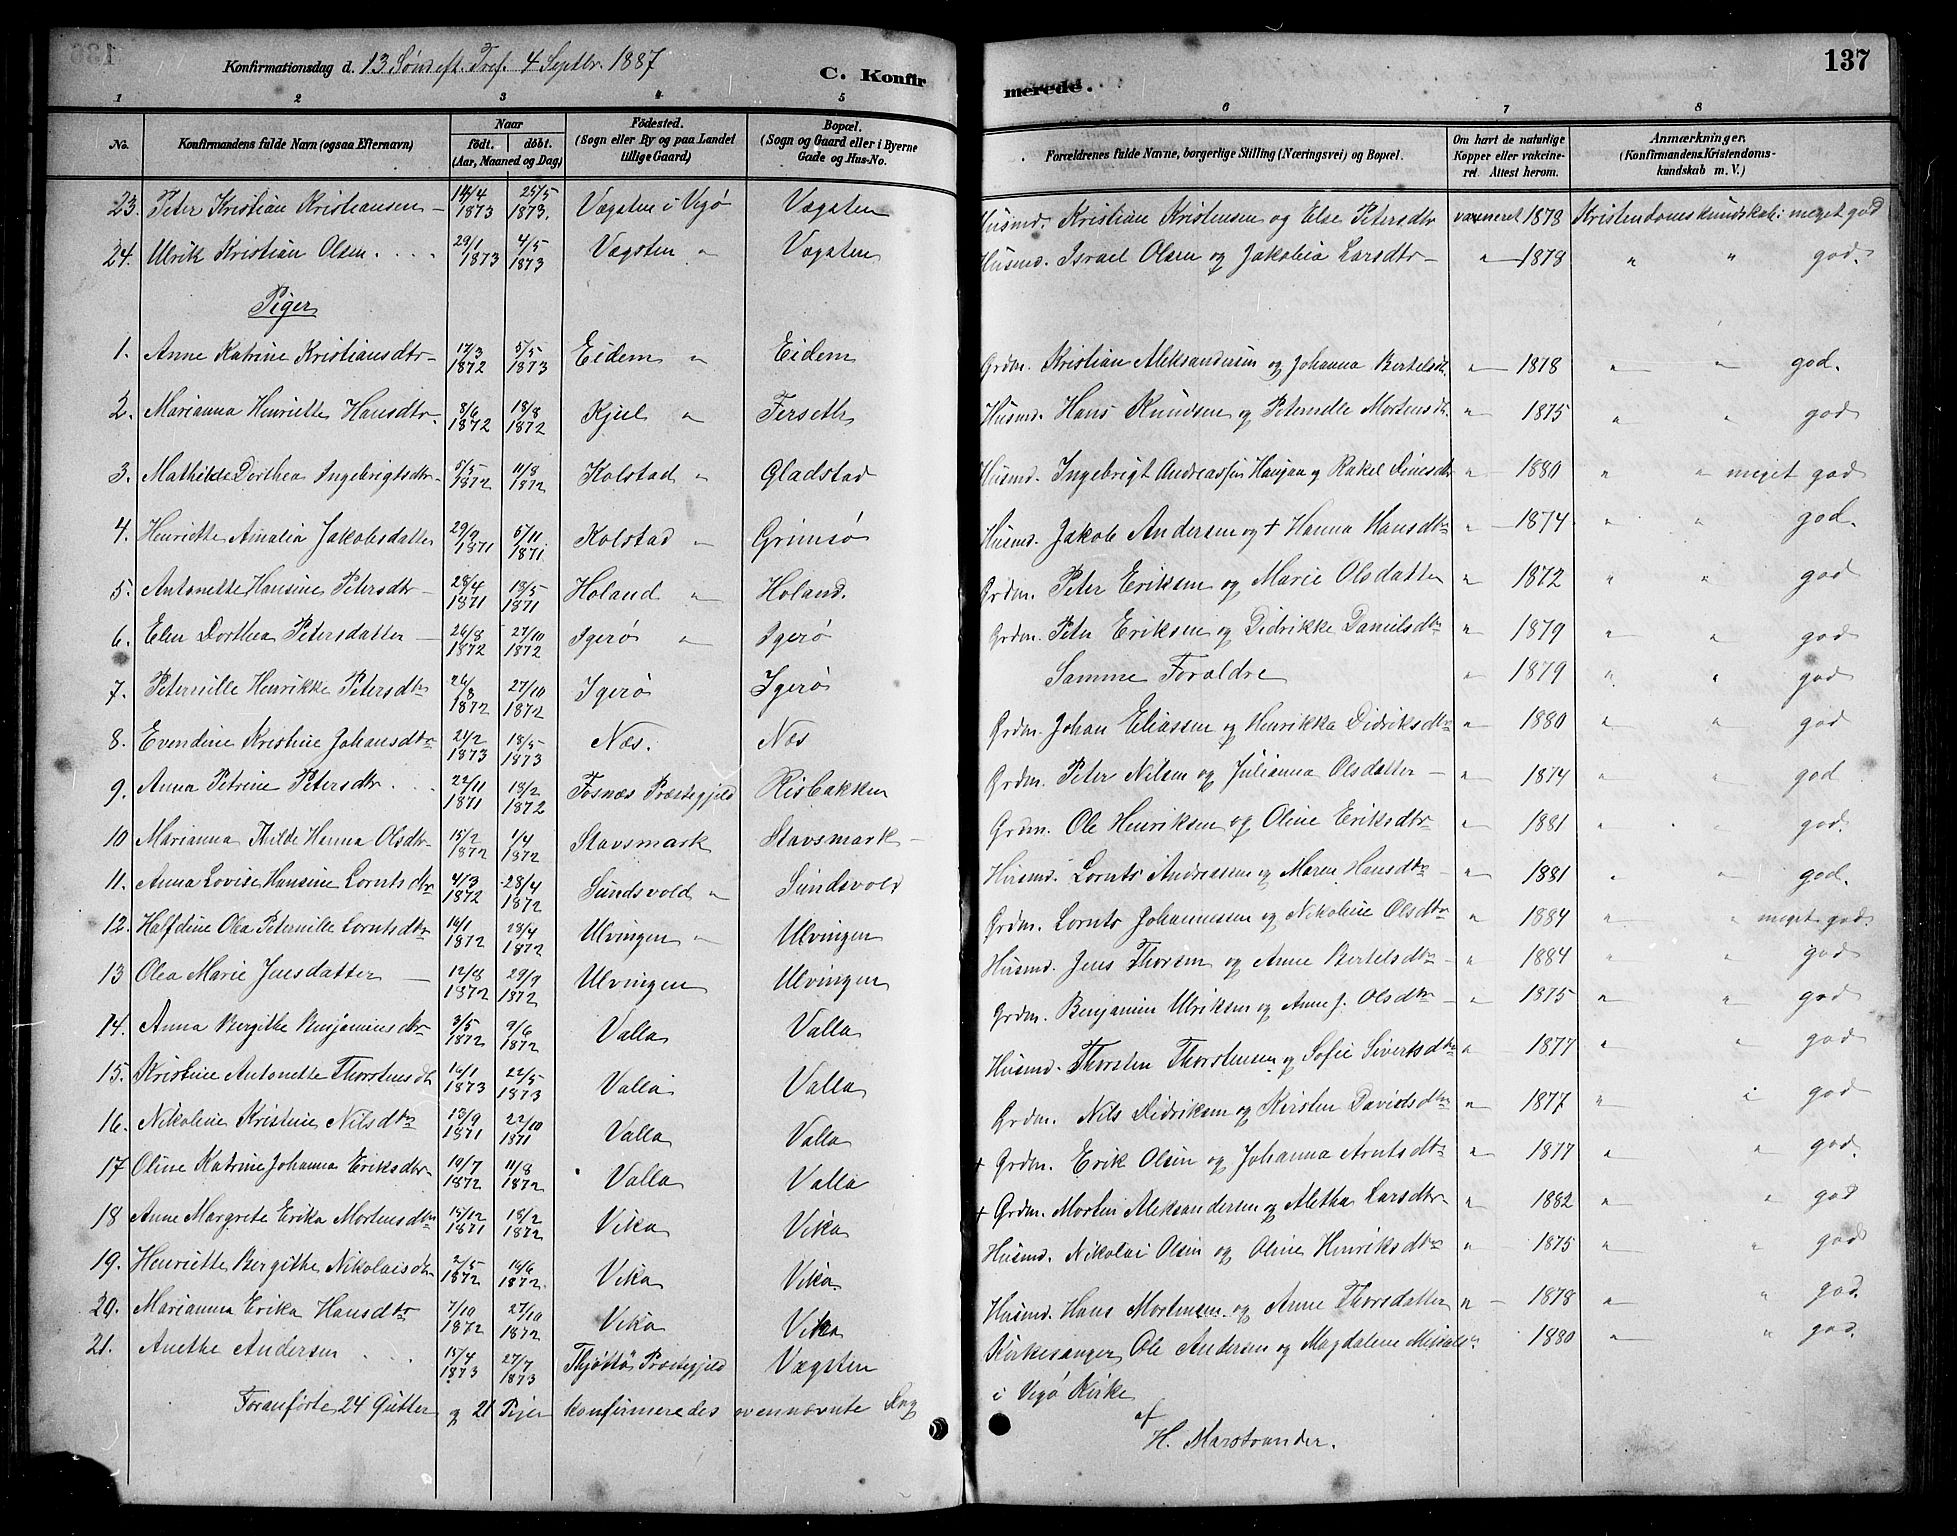 Konfirmationsdag d. 13 Søndeft. Tref. 4 Septbr. 1887
C. Konfirmerede.
137
1 2 3 4 5 6 7 8
No. | Konfirmandens fulde Navn (ogsaa Efternavn) | Naar født. døbt. (Aar, Maaned og Dag) | Fødested. (Sogn eller By og paa Landet tillige Gaard) | Bopæl. (Sogn og Gaard eller i Byerne Gade og Hus-No. | Forældrenes fulde Navne, borgerlige Stilling (Næringsvei) og Bopæl. | Om havt de naturlige Kopper eller vakcineret. Attest herom. | Anmærkninger, (Konfirmandens Kristendomskundskab m. V.)
23. Peter Kristian Kristiansen 14/4 1873 25/5 1873. Vægsten i Vegø Vægsten Husmd. Kristian Kristensen og Else Petersdtr 1878 Kristendomskundskab: meget god
24. Ulrik Kristian Olsen 29/1 1873 4/5 1873 Vægsten " Vægsten Husmd. Israel Olsen og Jakobia Larsdtr " 1878 " " god.
Piger
1. Anne Katrine Kristiansdtr 17/3 1872 5/5 1873 Eidem " Eidem Grdm. Kristian Aleksandersen og Johanna Bertelsdt. " 1878 " " god.
2. Marianna Henriette Hansdtr 8/6 1872 18/8 1872 Kjul " Ferseth Husmd. Hans Knudsen og Peternille Mortensdt. " 1875 " " god
3. Mathilde Dorthea Ingebrigtsdtr 5/5 1872 11/8 1872 Kolstad " Gladstad Husmd. Ingebrigt Andreassen og Rakel Dinesdtr " 1880 " " meget god
4. Henriette Amalia Jakobsdatter 29/9 1871 5/11 1871 Kolstad " Grimsø Husmd. Jakob Andersen og + Hanna Hansdtr " 1874 " " god.
5. Antonette Hansine Petersdtr 28/4 1871 18/5 1871 Holand " Holand. Grdm. Peter Eriksen og Marie Olsdatter " 1872 " " god
6. Elen Dorthea Petersdatter 26/8 1872 27/10 1872 Igerø " Igerø Grdm. Peter Eriksen og Didrikke Danielsdtr " 1879 " " god
7. Peternille Henrikke Petersdtr 26/8 1872 27/10 1872 Igerø Igerø Samme Forældre " 1879 " " god
8. Evendine Kristine Johansdtr 24/2 1873 18/5 1873 Næs. Næs Grdm. Johan Eliassen og Henrikka Didriksdtr " 1880 " " god
9. Anna Petrine Petersdtr 22/11 1871 18/2 1872 Fosnæs Præstegjeld Risbakken Grdm. Peter Nilsen og Julianna Olsdatter " 1874 " " god
10 Marianna Thilde Hanna Olsdtr 15/2 1872 1/4 1872 Stavsmark Stavsmark Grdm. Ole Henriksen og Oline Eriksdtr " 1881 " " god.
11. Anna Lovise Hansine Lorntsdtr 4/3 1872 28/4 1872 Sundsvold " Sundsvold Husmd. Lornts Andreassen og Maren Hansdtr " 1881 " " god.
12. Halfdine Olea Peternille Lorntsdtr 16/1 1872 28/4 1872 Ulvingen " Ulvingen Grdm. Lornts Johannessen og Nikoline Olsdtr " 1884 " " meget god
13 Olea Marie Jensdatter 12/8 1872 29/9 1872 Ulvingen Ulvingen Husmd. Jens Thorsen og Anne Bertelsdtr " 1884 " " god
14. Anna Bergithe Benjaminsdtr 3/5 1872 9/6 1872 Valla Valla Grdm. Benjamin Ulriksen og Anne J. Olsdtr " 1875 " " god
15. Kristine Antonette Thorstensdt 16/1 1873 22/5 1873 Valla Valla Husmd. Thorsten Thorstensen og Sofie Sivertsdtr " 1877 " " god
16. Nikoline Kristine Nilsdtr 13/9 1871 22/10 1871 Valla Valla Grdm. Nils Didriksen og Kirsten Davidsdtr " 1877 " " god
17 Oline Katrine Johanna Eriksdtr 19/7 1872 11/8 1872 Valla Valla + Grdm. Erik Olsen og Johanna Arntsdtr " 1877 " " god.
18 Anne Margrete Erika Mortensdtr 15/12 1871 18/2 1872 Vika Vika + Grdm. Morten Aleksandersen og Aletha Larsdtr " 1882 " " god
19. Henriette Bergithe Nikolaisdtr 2/5 1872 16/6 1872. Vika Vika Husmd. Nikolai Olsen og Oline Henriksdtr " 1875 " " god
20. Marianna Erika Hansdtr 7/10 1872 27/10 1872 Vika Vika Husmd. Hans Mortensen og Anne Thorsdatter " 1878 " " god.
21. Anethe Andersen 15/4 1873 27/7 1873 Thjøttø Præstegjeld Vægsten Kirkesanger Ole Andersen og Magdalene 1880 " " god.
Foranførte 24 Gutter og 21 Piger konfirmeredes ovennævnte Dag i Vegø Kirke
af
H. Marstrander.